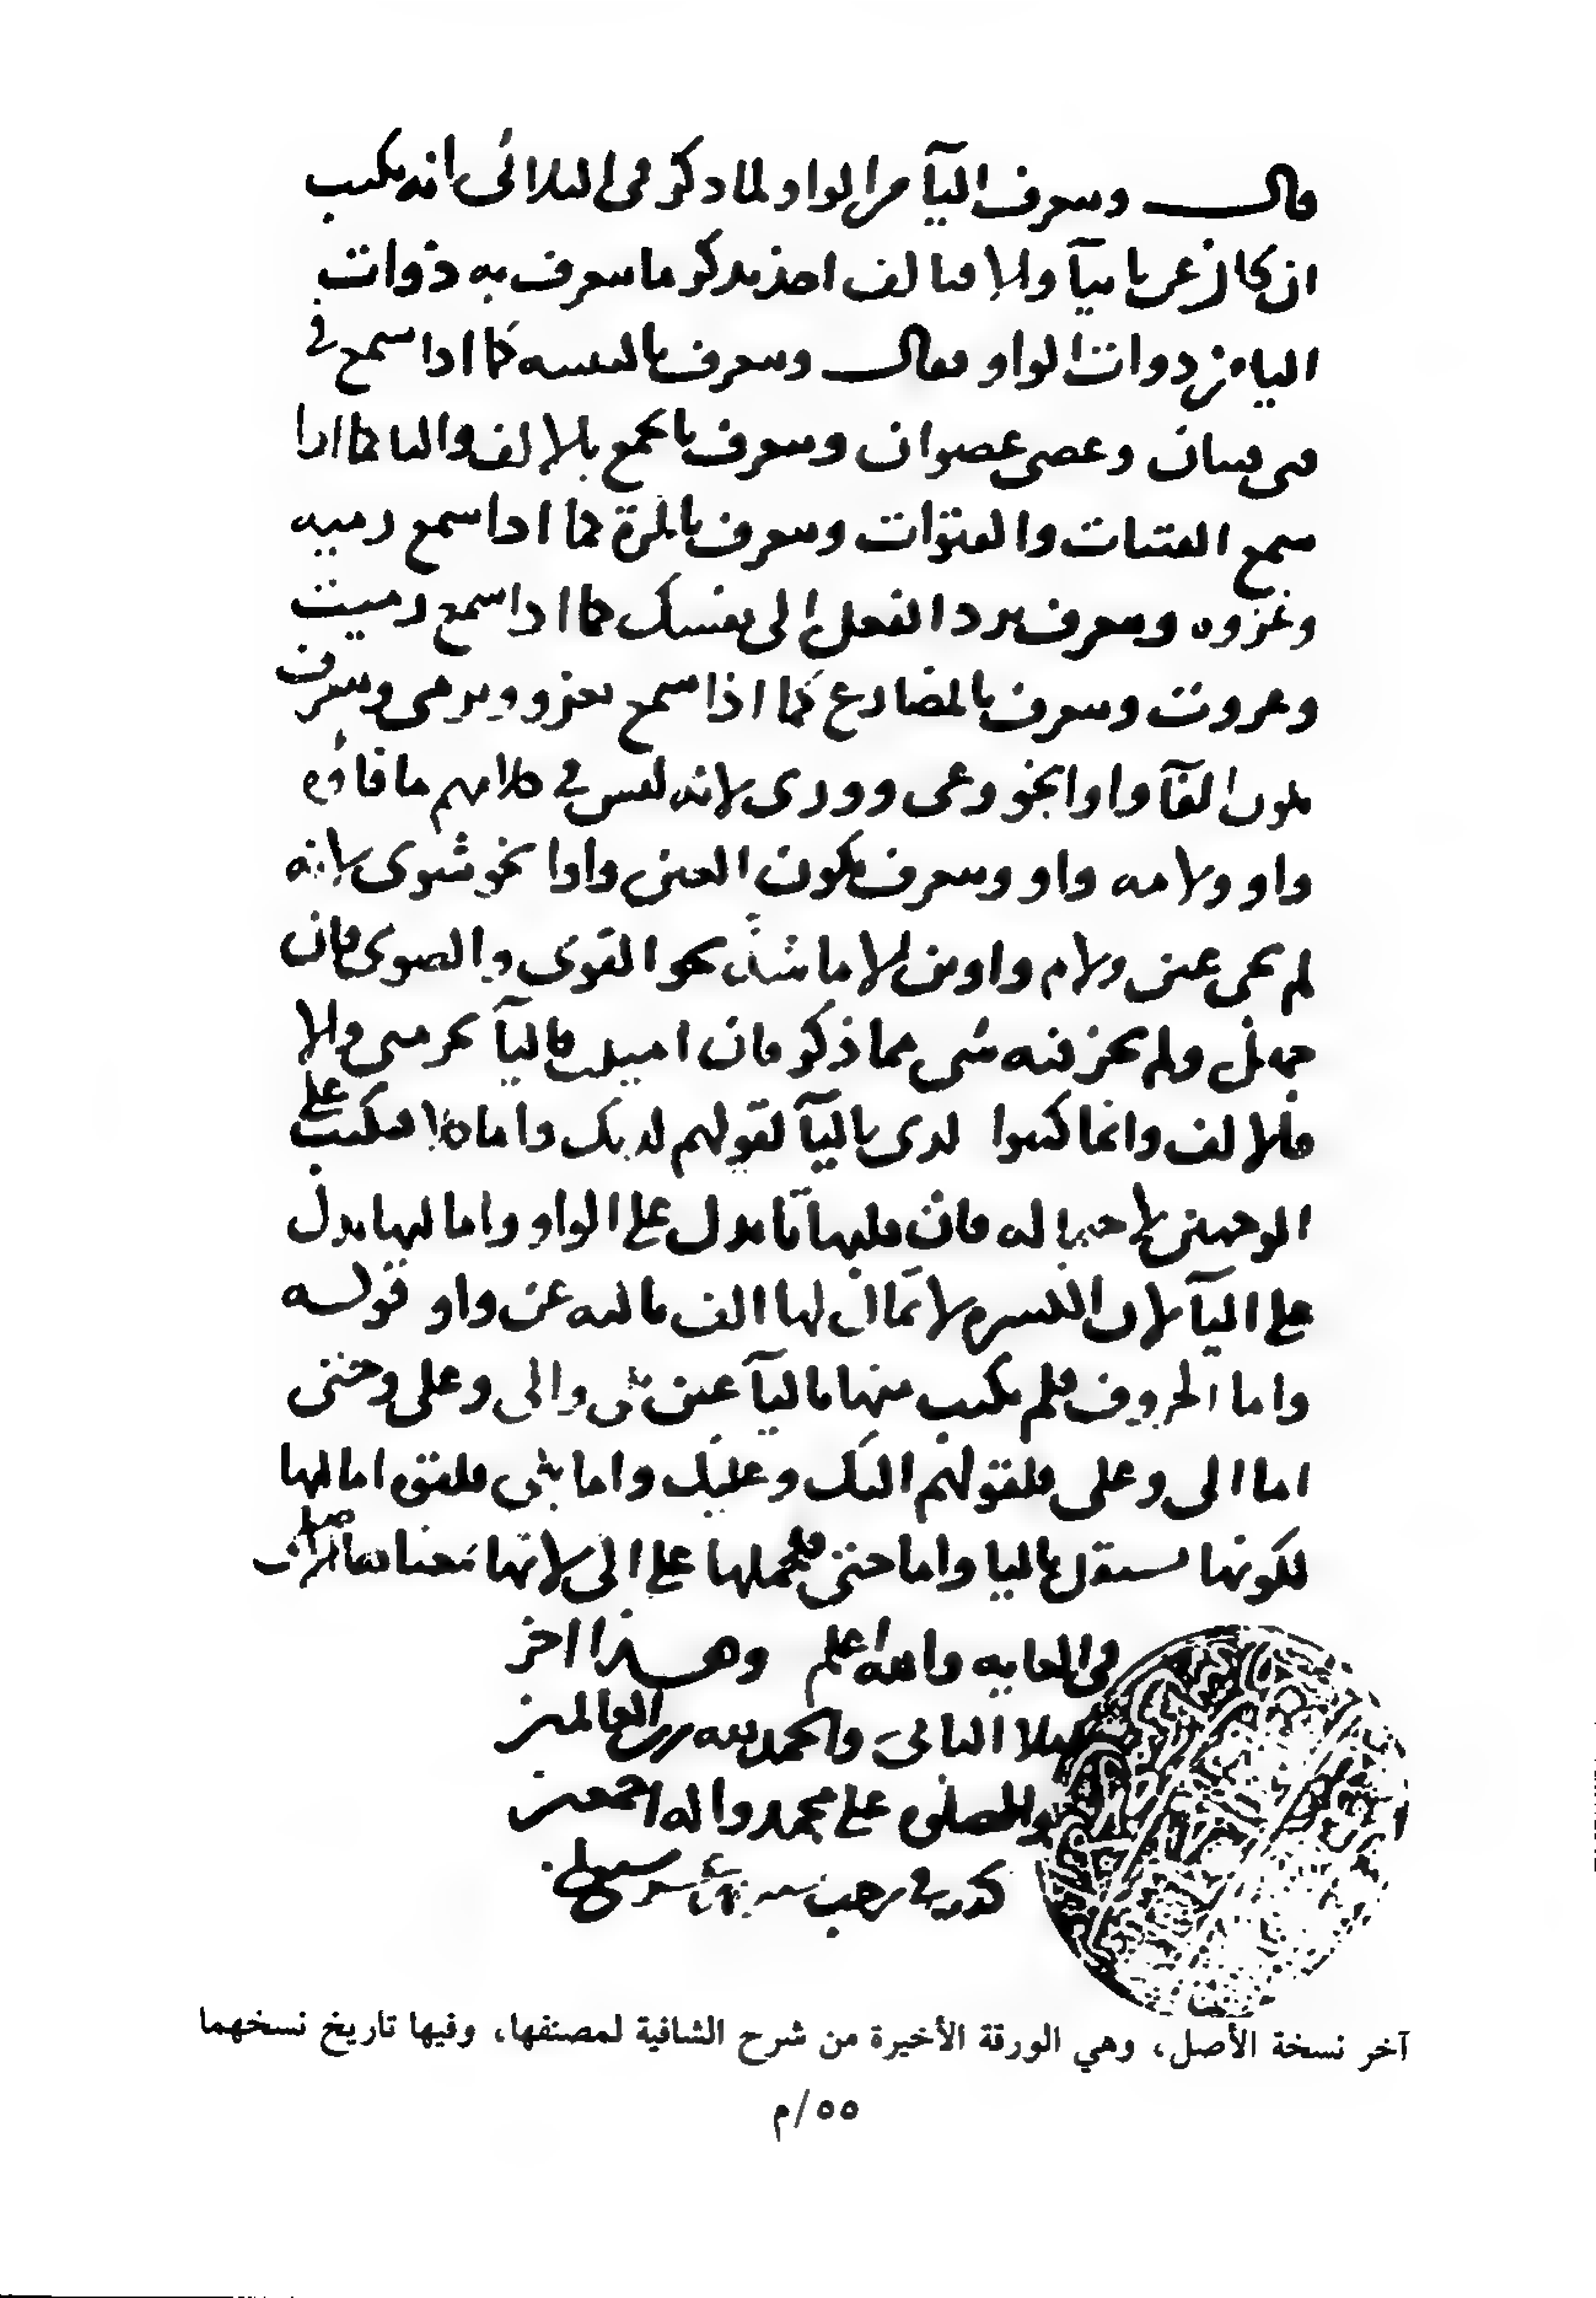 قال ويتعرف اليآ من الواو لما ذكر في الثلاثي انه يكتب
ان كان عن يا بيآ والا فبالف اخذ يذكر ما يتعرف به ذوات
اليا من ذوات الواو فقال ويتعرف بالتثنيه كما اذا سمع في
فتى فتيان وعصى عصوان ويتعرف بالجمع بالالف والتا كما اذا
سمع الفتيات والقنوات ويتعرف بالمرة كما اذا سمع رميه
وغزوه ويتعرف برد الفعل الى نفسك كما اذا سمع رميت
وغزوت ويتعرف بالمضارع كما اذا سمع يغزو ويرمي ويتعرف
بكون الفآ واوا نحو وعى وورى لانه ليس في كلامهم ما فاؤه
واو ولامه واو ويتعرف بكون العين واوا نحو شوى لانه
لم يجى عين ولام واوين الا ما شذ نحو القوى والصوى فان
جهل ولم يكن فيه شى مما ذكر فان اميلت فاليآ نحو متى والا
فالالف وانما كتبوا لدى باليآ لقولهم لديك واما كلا فتكتب على
الوجهين لاحتماله فان قلبها تآ يدل على الواو وامالتها يدل
على اليآ لان الكسره لا تمال لها الف ثالثه عن واو قوله
واما الحروف فلم يكتب منها باليآ غير بلى والى وعلى وحتى
اما الى وعلى فلقولهم اليك وعليك واما بلى فلقوه امالتها
لكونها تستقل واما حتى فلحملها على الى لانها بمعناها
في الغايه والله اعلم وهذا اخر
والحمد لله رب العالمين
والمصلى على محمد واله اجمعين
في رجب
آخر نسخة الأصل، وهي الورقة الأخيرة من شرح الشافية لمصنفها، وفيها تاريخ نسخهما
٥٥/م